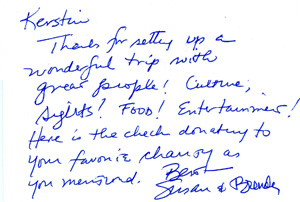 Kerstin
Thanks for setting up a
wonderful trip with
great people! Culture,
Sights! Food! Entertainment!
Here is the check donating to
your favorite charity as
you mentioned. Best
Susan & Brenda